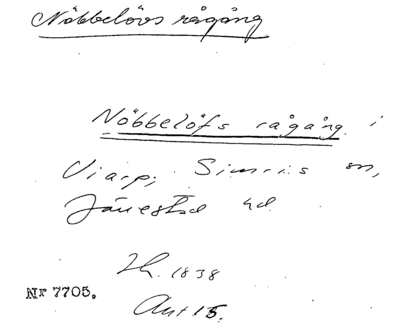 Nöbbelövs rågång
Nöbbelöfs rågång i
Viarp, Simris sn,
Järrestad hd
Lh. 1838
Akt 15.
Nr 7705.